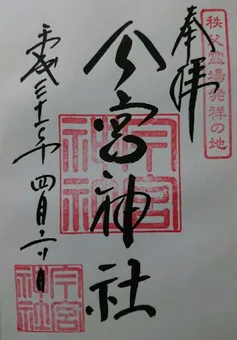 秩父霊場発祥の地
奉拝
今宮神社
今宮神社
平成三十一年四月 日
今宮神社